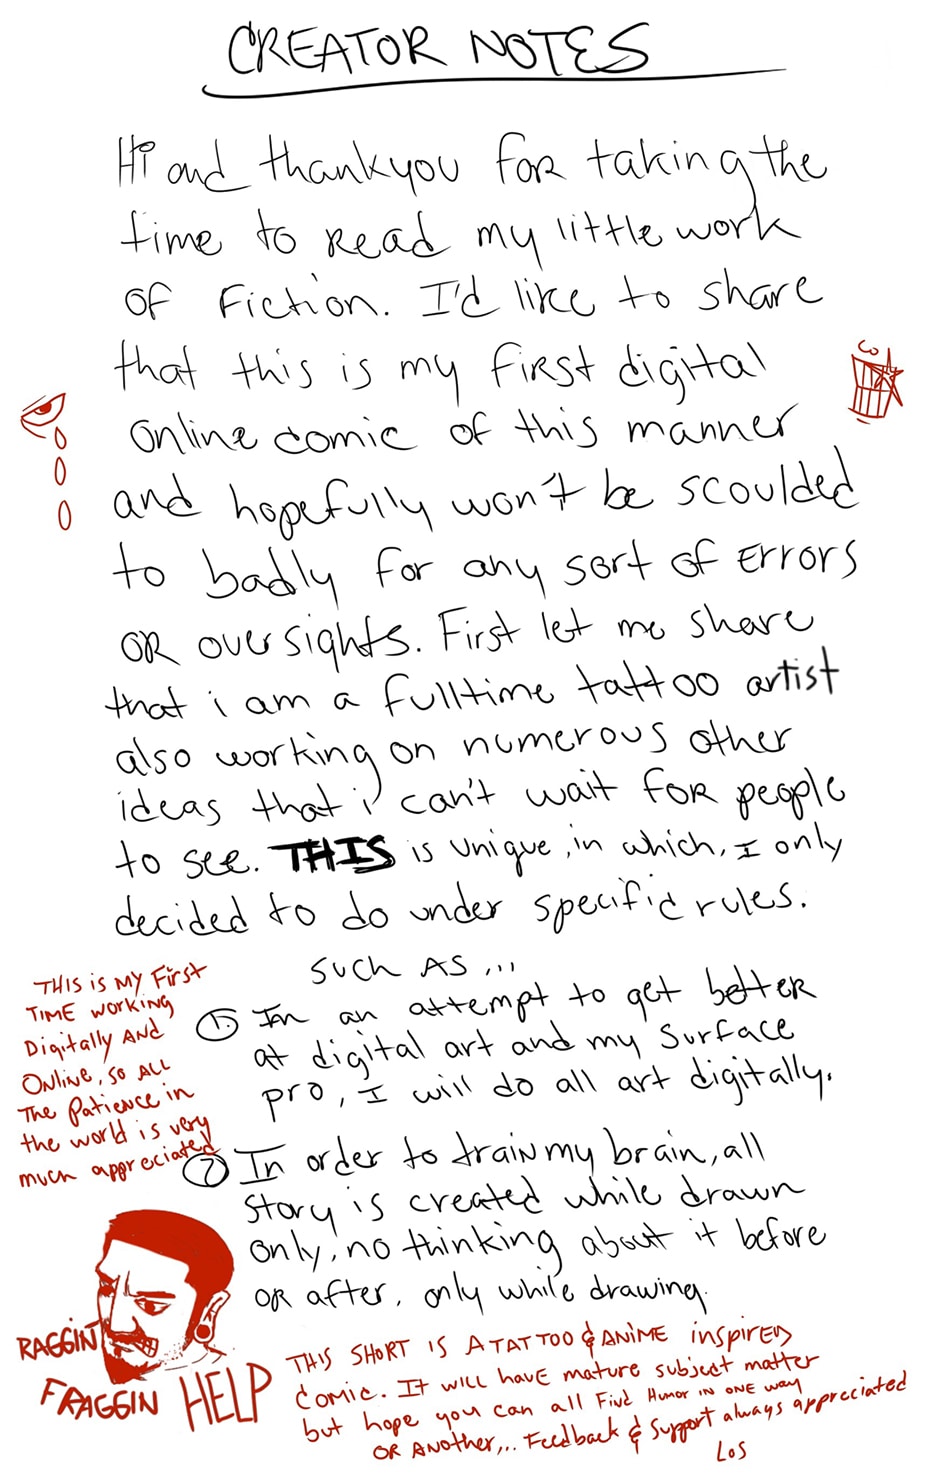 CREATOR NOTES
Hi and thankyou for taking the
time to read my little work
of Fiction. I'd like to share
that this is my first digital
online comic of this manner
and hopefully won't be scoulded
to badly for any sort of errors
or oversights. First let me share
that i am a fulltime tattoo artist
also working on numerous other
ideas that i can't wait for people
to see. THIS is unique, in which, I only
decided to do under specific rules.
such As ...
1. In an attempt to get better
at digital art and my surface
pro, I will do all art digitally.
2 In order to train my brain, all
story is created while drawn
only, no thinking about it before
or after, only while drawing.
THIS is MY First
TIME working
Digitally AND
ONLINE, so ALL
The Patience in
the world is very
much appreciated
RAGGIN
FRAGGIN HELP
THIS SHORT IS A TATTOO & ANIME inspired
comic. It will have mature subject matter
but hope you can all Find Humor in one way
OR ANother,.. Feedback & support always appreciated
Los